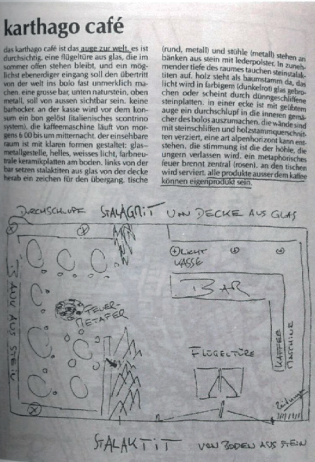 karthago café
das karthago café ist das auge zur welt. es ist
durchsichtig, eine flügeltüre aus glas, die im
sommer offen stehen bleibt, und ein mög-
lichst ebenerdiger eingang soll den übertritt
von der welt ins bolo fast unmerklich ma-
chen. eine grosse bar, unten naturstein, oben
metall, soll von aussen sichtbar sein. keine
barhocker. an der kasse wird vor dem kon-
sum ein bon gelöst (italienisches scontrino
system). die kaffeemaschine läuft von mor-
gens 6.00 bis um mitternacht. der einsehbare
raum ist mit klaren formen gestaltet: glas-
metallgestelle, helles, weisses licht, farbneu-
trale keramikplatten am boden. links von der
bar setzen stalaktiten aus glas von der decke
herab ein zeichen für den übergang. tische
(rund, metall) und stühle (metall) stehen an
bänken aus stein mit lederpolster. in zuneh-
mender tiefe des raumes tauchen steinstalak-
titen auf. holz steht als baumstamm da, das
licht wird in farbigem (dunkelrot) glas gebro-
chen oder scheint durch dünngeschliffene
steinplatten. in einer ecke ist mit geübtem
auge ein durchschlupf in die inneren gemä-
cher des bolos auszumachen. die wände sind
mit steinschliffen und holzstammquerschnit-
ten verziert, eine art alpenhorizont kann ent-
stehen, die stimmung ist die der höhle, die
ungern verlassen wird. ein metaphorisches
feuer brennt zentral (rosen). an den tischen
wird serviert. alle produkte ausser dem kaffee
können eigenprodukt sein.
DURCHSCHLUPF STALAGMIT VON DECKE AUS GLAS
LICHT
KASSE
BAR
FEUER
METAFER
KAFFEE
MASCHINE
FLÜGELTÜRE
STALAKTIT VON BODEN AUS STEIN